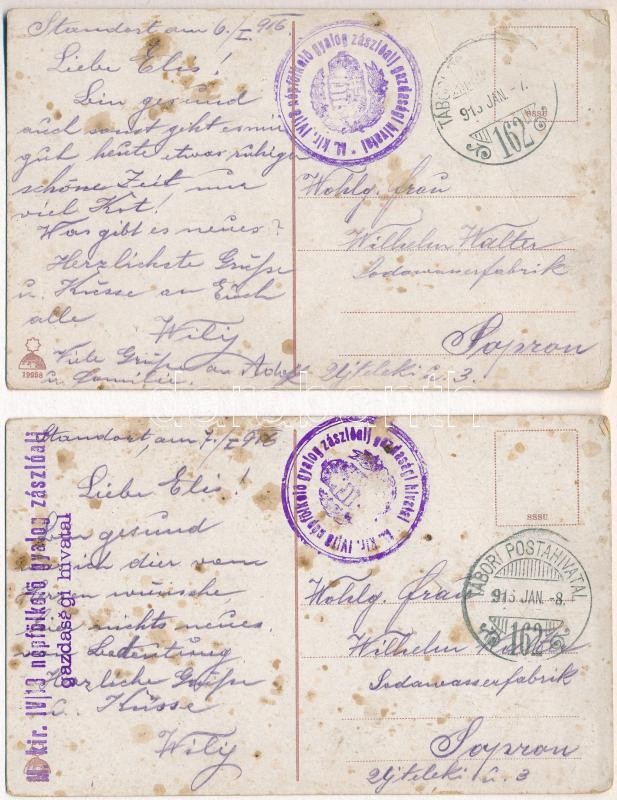 Standort am 6./I. 916
Liebe Elis!
Bin gesund
auch sonst geht es mir
gut heute etwas ruhiger
schöne Zeit nur
viel Kot!
Was gibt es neues?
Herzlichste Grüße
u. Küsse an Euch
alle
Wily
Viele Grüße an Adolf
u. Familie.
19958
M. kir. IV/13 népfölkelő gyalog zászlóalj gazdasági hivatal
TÁBORI
JAN. -7.
162
SSSU
Wohlg. Frau
Wilhelm Walter
Sodawasserfabrik
Sopron
Ujteleki u. 3.
Standort, am 7./I 916
Liebe Elis!
Bin gesund
dir vom
wünsche
nichts neues
von Bedeutung
Herzliche Grüße
u. Küsse
Wily
M. kir. IV/13 népfölkelő gyalog zászlóalj
gazdasági hivatal
M. kir. IV/13 népfölkelő gyalog zászlóalj gazdasági hivatal
SSSU
TÁBORI POSTAHIVATAL
JAN. -8.
162
Wohlg. Frau
Wilhelm Walter
Sodawasserfabrik
Sopron
Ujteleki u. 3